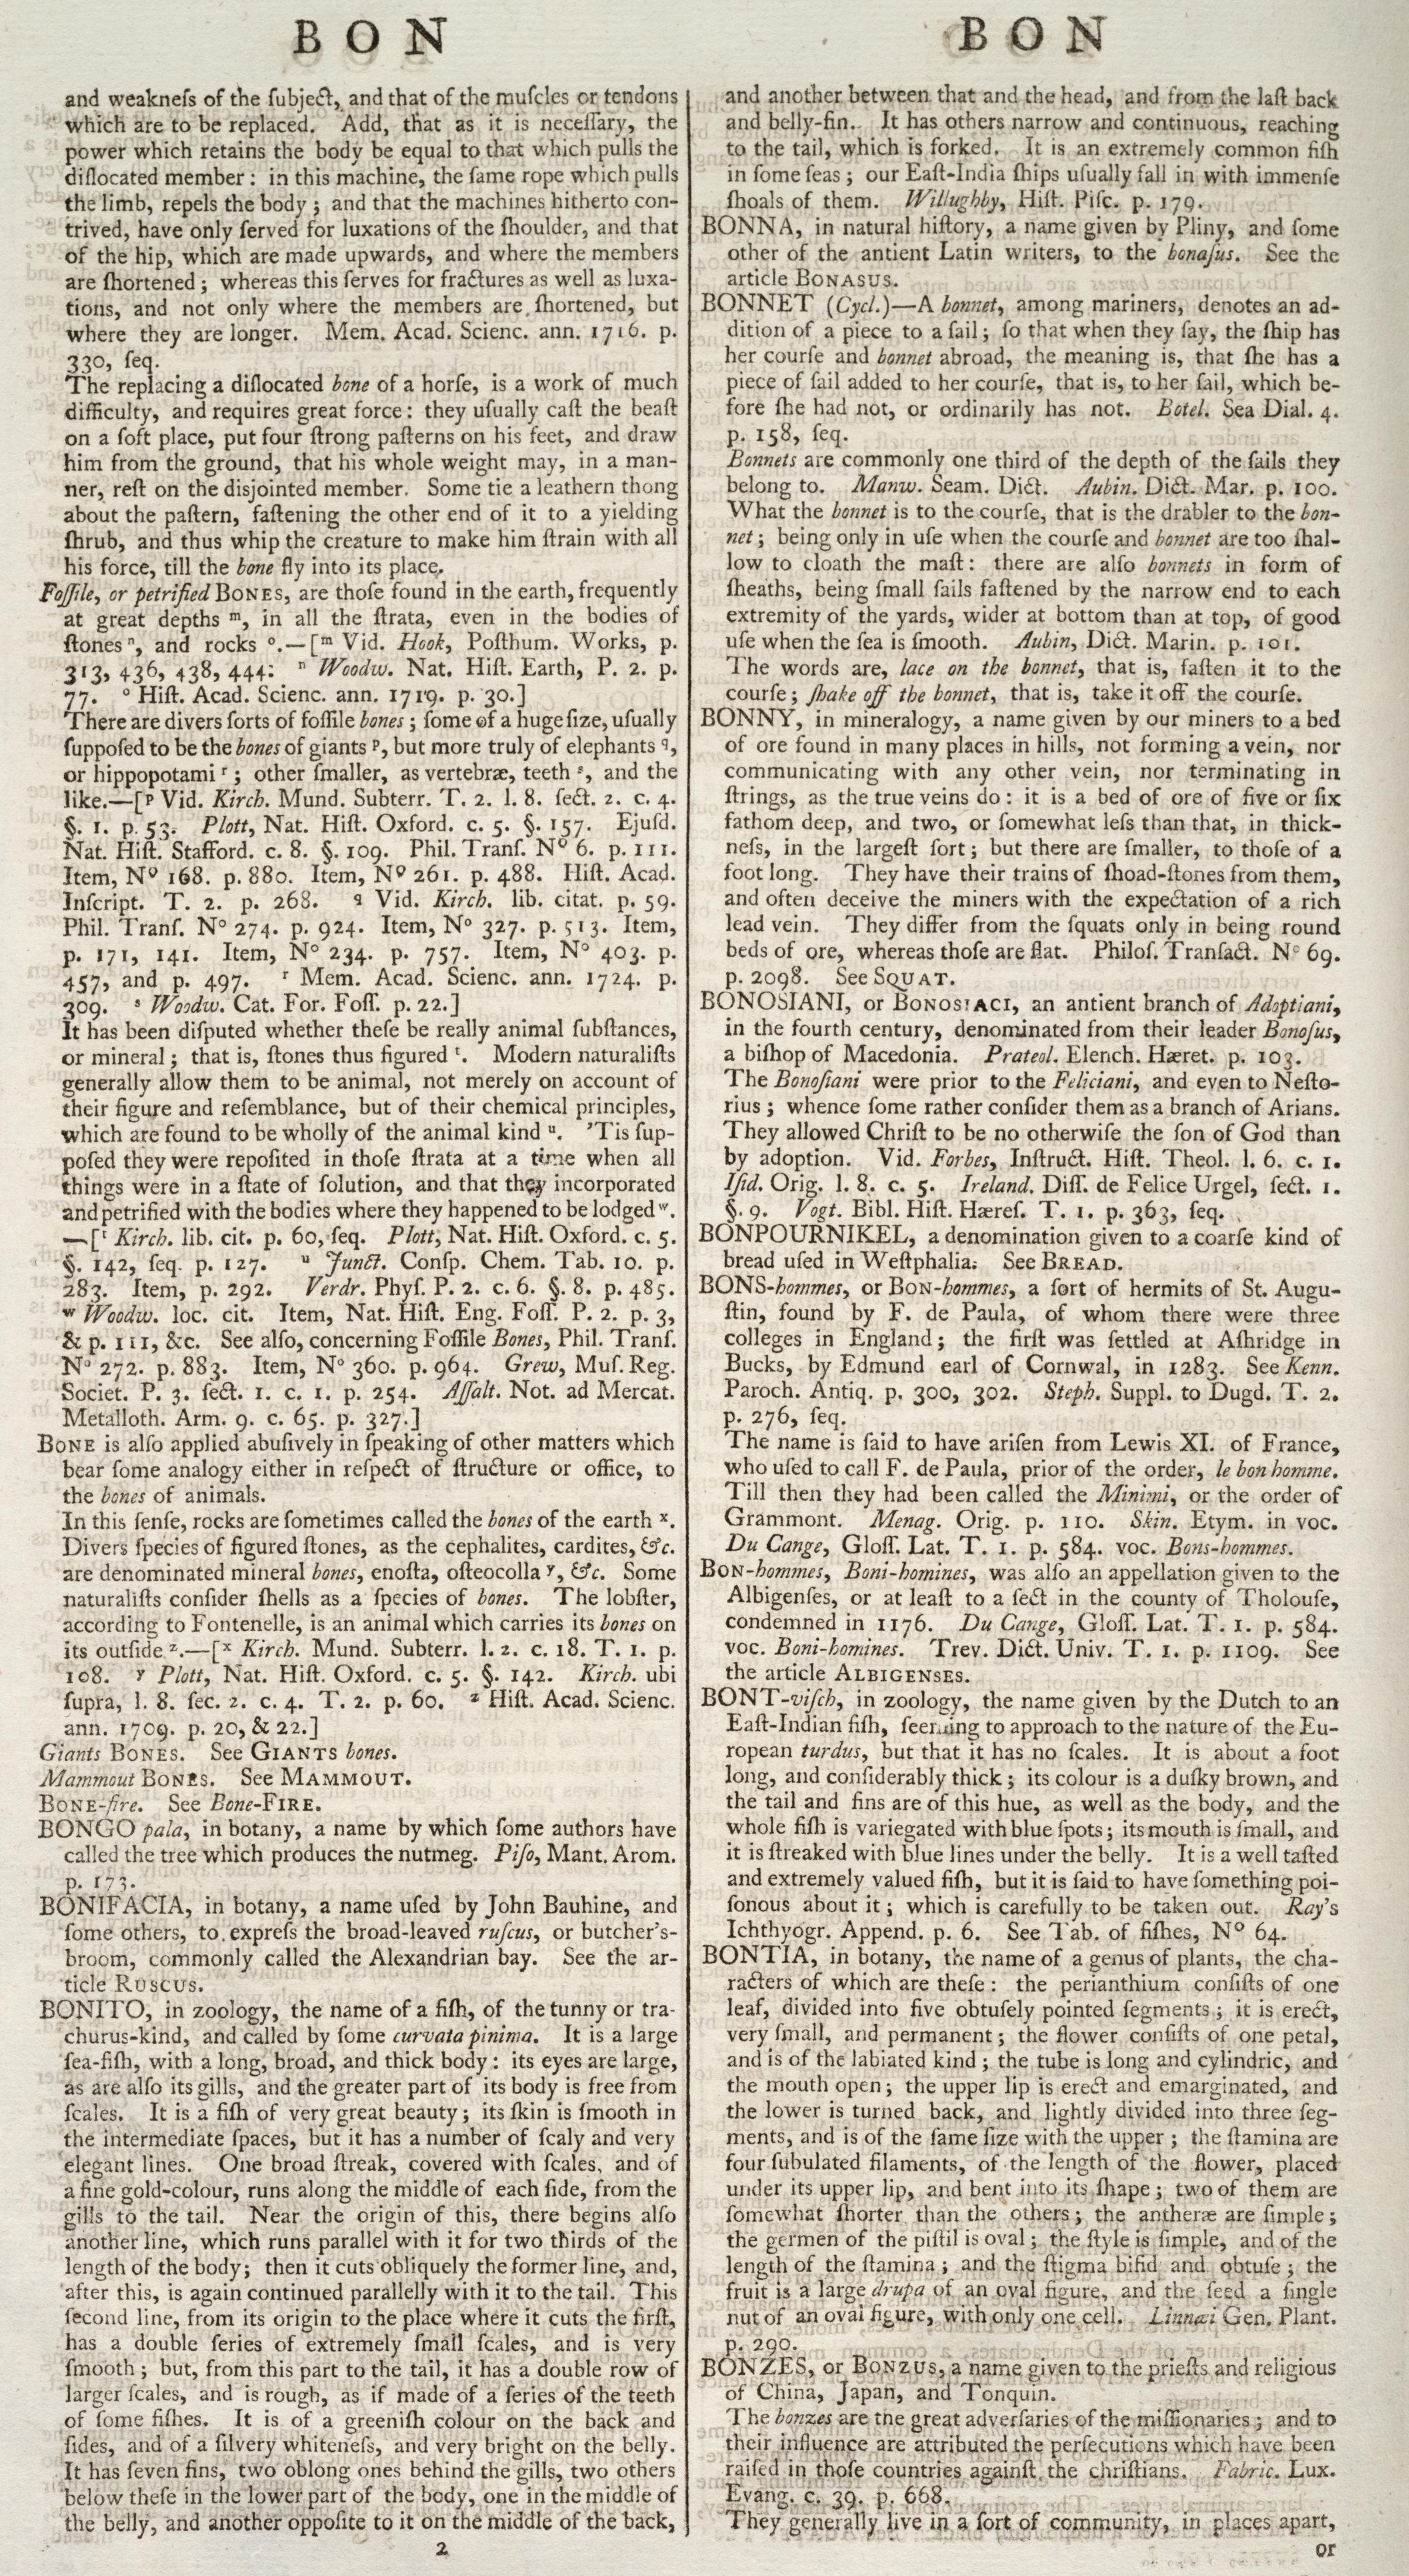 BON
and weakneſs of the ſubject, and that of the muſcles or tendons
which are to be replaced. Add, that as it is neceſſary, the
power which retains the body be equal to that which pulls the
diſlocated member: in this machine, the ſame rope which pulls
the limb, repels the body; and that the machines hitherto con-
trived, have only ſerved for luxations of the ſhoulder, and that
of the hip, which are made upwards, and where the members
are ſhortened; whereas this ſerves for fractures as well as luxa-
tions, and not only where the members are ſhortened, but
where they are longer. Mem. Acad. Scienc. ann. 1716. p.
330, ſeq.
The replacing a diſlocated bone of a horſe, is a work of much
difficulty, and requires great force: they uſually caſt the beaſt
on a ſoft place, put four ſtrong paſterns on his feet, and draw
him from the ground, that his whole weight may, in a man-
ner, reſt on the disjointed member. Some tie a leathern thong
about the paſtern, faſtening the other end of it to a yielding
ſhrub, and thus whip the creature to make him ſtrain with all
his force, till the bone fly into its place.
Foſſile, or petrified BONES, are thoſe found in the earth, frequently
at great depths ᵐ, in all the ſtrata, even in the bodies of
ſtones ⁿ, and rocks ᵒ.—[ᵐ Vid. Hook, Poſthum. Works, p.
313, 436, 438, 444. ⁿ Woodw. Nat. Hiſt. Earth, P. 2. p.
77. ᵒ Hiſt. Acad. Scienc. ann. 1719. p. 30.]
There are divers ſorts of foſſile bones; ſome of a huge ſize, uſually
ſuppoſed to be the bones of giants ᵖ, but more truly of elephants q,
or hippopotami ʳ; other ſmaller, as vertebræ, teeth ˢ, and the
like.—[ᵖ Vid. Kirch. Mund. Subterr. T. 2. l. 8. ſect. 2. c. 4.
§. 1. p. 53. Plott, Nat. Hiſt. Oxford. c. 5. §. 157. Ejuſd.
Nat. Hiſt. Stafford. c. 8. §. 109. Phil. Tranſ. Nº 6. p. 111.
Item, Nº 168. p. 880. Item, Nº 261. p. 488. Hiſt. Acad.
Inſcript. T. 2. p. 268. q Vid. Kirch. lib. citat. p. 59.
Phil. Tranſ. Nº 274. p. 924. Item, Nº 327. p. 513. Item,
p. 171, 141. Item, Nº 234. p. 757. Item, Nº 403. p.
457, and p. 497. ʳ Mem. Acad. Scienc. ann. 1724. p.
309. ˢ Woodw. Cat. For. Foſſ. p. 22.]
It has been diſputed whether theſe be really animal ſubſtances,
or mineral; that is, ſtones thus figured ᵗ. Modern naturaliſts
generally allow them to be animal, not merely on account of
their figure and reſemblance, but of their chemical principles,
which are found to be wholly of the animal kind ᵘ. 'Tis ſup-
poſed they were repoſited in thoſe ſtrata at a time when all
things were in a ſtate of ſolution, and that they incorporated
and petrified with the bodies where they happened to be lodged ʷ.
—[ᵗ Kirch. lib. cit. p. 60, ſeq. Plott, Nat. Hiſt. Oxford. c. 5.
§. 142, ſeq. p. 127. ᵘ Junct. Conſp. Chem. Tab. 10. p.
283. Item, p. 292. Verdr. Phyſ. P. 2. c. 6. §. 8. p. 485.
ʷ Woodw. loc. cit. Item, Nat. Hiſt. Eng. Foſſ. P. 2. p. 3,
& p. 111, &c. See alſo, concerning Foſſile Bones, Phil. Tranſ.
Nº 272. p. 883. Item, Nº 360. p. 964. Grew, Muſ. Reg.
Societ. P. 3. ſect. 1. c. 1. p. 254. Aſſalt. Not. ad Mercat.
Metalloth. Arm. 9. c. 65. p. 327.]
BONE is alſo applied abuſively in ſpeaking of other matters which
bear ſome analogy either in reſpect of ſtructure or office, to
the bones of animals.
In this ſenſe, rocks are ſometimes called the bones of the earth ˣ.
Divers ſpecies of figured ſtones, as the cephalites, cardites, &c.
are denominated mineral bones, enoſta, oſteocolla ʸ, &c. Some
naturaliſts conſider ſhells as a ſpecies of bones. The lobſter,
according to Fontenelle, is an animal which carries its bones on
its outſide ᶻ.—[ˣ Kirch. Mund. Subterr. l. 2. c. 18. T. 1. p.
108. ʸ Plott, Nat. Hiſt. Oxford. c. 5. §. 142. Kirch. ubi
ſupra, l. 8. ſec. 2. c. 4. T. 2. p. 60. ᶻ Hiſt. Acad. Scienc.
ann. 1709. p. 20, & 22.]
Giants BONES. See GIANTS bones.
Mammout BONES. See MAMMOUT.
BONE-fire. See Bone-FIRE.
BONGO pala, in botany, a name by which ſome authors have
called the tree which produces the nutmeg. Piſo, Mant. Arom.
p. 173.
BONIFACIA, in botany, a name uſed by John Bauhine, and
ſome others, to expreſs the broad-leaved ruſcus, or butcher's-
broom, commonly called the Alexandrian bay. See the ar-
ticle RUSCUS.
BONITO, in zoology, the name of a fiſh, of the tunny or tra-
churus-kind, and called by ſome curvata pinima. It is a large
ſea-fiſh, with a long, broad, and thick body: its eyes are large,
as are alſo its gills, and the greater part of its body is free from
ſcales. It is a fiſh of very great beauty; its ſkin is ſmooth in
the intermediate ſpaces, but it has a number of ſcaly and very
elegant lines. One broad ſtreak, covered with ſcales, and of
a fine gold-colour, runs along the middle of each ſide, from the
gills to the tail. Near the origin of this, there begins alſo
another line, which runs parallel with it for two thirds of the
length of the body; then it cuts obliquely the former line, and,
after this, is again continued parallelly with it to the tail. This
ſecond line, from its origin to the place where it cuts the firſt,
has a double ſeries of extremely ſmall ſcales, and is very
ſmooth; but, from this part to the tail, it has a double row of
larger ſcales, and is rough, as if made of a ſeries of the teeth
of ſome fiſhes. It is of a greeniſh colour on the back and
ſides, and of a ſilvery whiteneſs, and very bright on the belly.
It has ſeven fins, two oblong ones behind the gills, two others
below theſe in the lower part of the body, one in the middle of
the belly, and another oppoſite to it on the middle of the back,
2
BON
and another between that and the head, and from the laſt back
and belly-fin. It has others narrow and continuous, reaching
to the tail, which is forked. It is an extremely common fiſh
in ſome ſeas; our Eaſt-India ſhips uſually fall in with immenſe
ſhoals of them. Willughby, Hiſt. Piſc. p. 179.
BONNA, in natural hiſtory, a name given by Pliny, and ſome
other of the antient Latin writers, to the bonaſus. See the
article BONASUS.
BONNET (Cycl.)—A bonnet, among mariners, denotes an ad-
dition of a piece to a ſail; ſo that when they ſay, the ſhip has
her courſe and bonnet abroad, the meaning is, that ſhe has a
piece of ſail added to her courſe, that is, to her ſail, which be-
fore ſhe had not, or ordinarily has not. Botel. Sea Dial. 4.
p. 158, ſeq.
Bonnets are commonly one third of the depth of the ſails they
belong to. Manw. Seam. Dict. Aubin. Dict. Mar. p. 100.
What the bonnet is to the courſe, that is the drabler to the bon-
net; being only in uſe when the courſe and bonnet are too ſhal-
low to cloath the maſt: there are alſo bonnets in form of
ſheaths, being ſmall ſails faſtened by the narrow end to each
extremity of the yards, wider at bottom than at top, of good
uſe when the ſea is ſmooth. Aubin, Dict. Marin. p. 101.
The words are, lace on the bonnet, that is, faſten it to the
courſe; ſhake off the bonnet, that is, take it off the courſe.
BONNY, in mineralogy, a name given by our miners to a bed
of ore found in many places in hills, not forming a vein, nor
communicating with any other vein, nor terminating in
ſtrings, as the true veins do: it is a bed of ore of five or ſix
fathom deep, and two, or ſomewhat leſs than that, in thick-
neſs, in the largeſt ſort; but there are ſmaller, to thoſe of a
foot long. They have their trains of ſhoad-ſtones from them,
and often deceive the miners with the expectation of a rich
lead vein. They differ from the ſquats only in being round
beds of ore, whereas thoſe are flat. Philoſ. Tranſact. Nº 69.
p. 2098. See SQUAT.
BONOSIANI, or BONOSIACI, an antient branch of Adoptiani,
in the fourth century, denominated from their leader Bonoſus,
a biſhop of Macedonia. Prateol. Elench. Hæret. p. 103.
The Bonoſiani were prior to the Feliciani, and even to Neſto-
rius; whence ſome rather conſider them as a branch of Arians.
They allowed Chriſt to be no otherwiſe the ſon of God than
by adoption. Vid. Forbes, Inſtruct. Hiſt. Theol. l. 6. c. 1.
Iſid. Orig. l. 8. c. 5. Ireland. Diſſ. de Felice Urgel, ſect. 1.
§. 9. Vogt. Bibl. Hiſt. Hæreſ. T. 1. p. 363, ſeq.
BONPOURNIKEL, a denomination given to a coarſe kind of
bread uſed in Weſtphalia. See BREAD.
BONS-hommes, or BON-hommes, a ſort of hermits of St. Augu-
ſtin, found by F. de Paula, of whom there were three
colleges in England; the firſt was ſettled at Aſhridge in
Bucks, by Edmund earl of Cornwal, in 1283. See Kenn.
Paroch. Antiq. p. 300, 302. Steph. Suppl. to Dugd. T. 2.
p. 276, ſeq.
The name is ſaid to have ariſen from Lewis XI. of France,
who uſed to call F. de Paula, prior of the order, le bon homme.
Till then they had been called the Minimi, or the order of
Grammont. Menag. Orig. p. 110. Skin. Etym. in voc.
Du Cange, Gloſſ. Lat. T. 1. p. 584. voc. Bons-hommes.
BON-hommes, Boni-homines, was alſo an appellation given to the
Albigenſes, or at leaſt to a ſect in the county of Tholouſe,
condemned in 1176. Du Cange, Gloſſ. Lat. T. 1. p. 584.
voc. Boni-homines. Trev. Dict. Univ. T. 1. p. 1109. See
the article ALBIGENSES.
BONT-viſch, in zoology, the name given by the Dutch to an
Eaſt-Indian fiſh, ſeeming to approach to the nature of the Eu-
ropean turdus, but that it has no ſcales. It is about a foot
long, and conſiderably thick; its colour is a duſky brown, and
the tail and fins are of this hue, as well as the body, and the
whole fiſh is variegated with blue ſpots; its mouth is ſmall, and
it is ſtreaked with blue lines under the belly. It is a well taſted
and extremely valued fiſh, but it is ſaid to have ſomething poi-
ſonous about it; which is carefully to be taken out. Ray's
Ichthyogr. Append. p. 6. See Tab. of fiſhes, Nº 64.
BONTIA, in botany, the name of a genus of plants, the cha-
racters of which are theſe: the perianthium conſiſts of one
leaf, divided into five obtuſely pointed ſegments; it is erect,
very ſmall, and permanent; the flower conſiſts of one petal,
and is of the labiated kind; the tube is long and cylindric, and
the mouth open; the upper lip is erect and emarginated, and
the lower is turned back, and lightly divided into three ſeg-
ments, and is of the ſame ſize with the upper; the ſtamina are
four ſubulated filaments, of the length of the flower, placed
under its upper lip, and bent into its ſhape; two of them are
ſomewhat ſhorter than the others; the antheræ are ſimple;
the germen of the piſtil is oval; the ſtyle is ſimple, and of the
length of the ſtamina; and the ſtigma bifid and obtuſe; the
fruit is a large drupa of an oval figure, and the ſeed a ſingle
nut of an oval figure, with only one cell. Linnæi Gen. Plant.
p. 290.
BONZES, or BONZUS, a name given to the prieſts and religious
of China, Japan, and Tonquin.
The bonzes are the great adverſaries of the miſſionaries; and to
their influence are attributed the perſecutions which have been
raiſed in thoſe countries againſt the chriſtians. Fabric. Lux.
Evang. c. 39. p. 668.
They generally live in a ſort of community, in places apart,
or